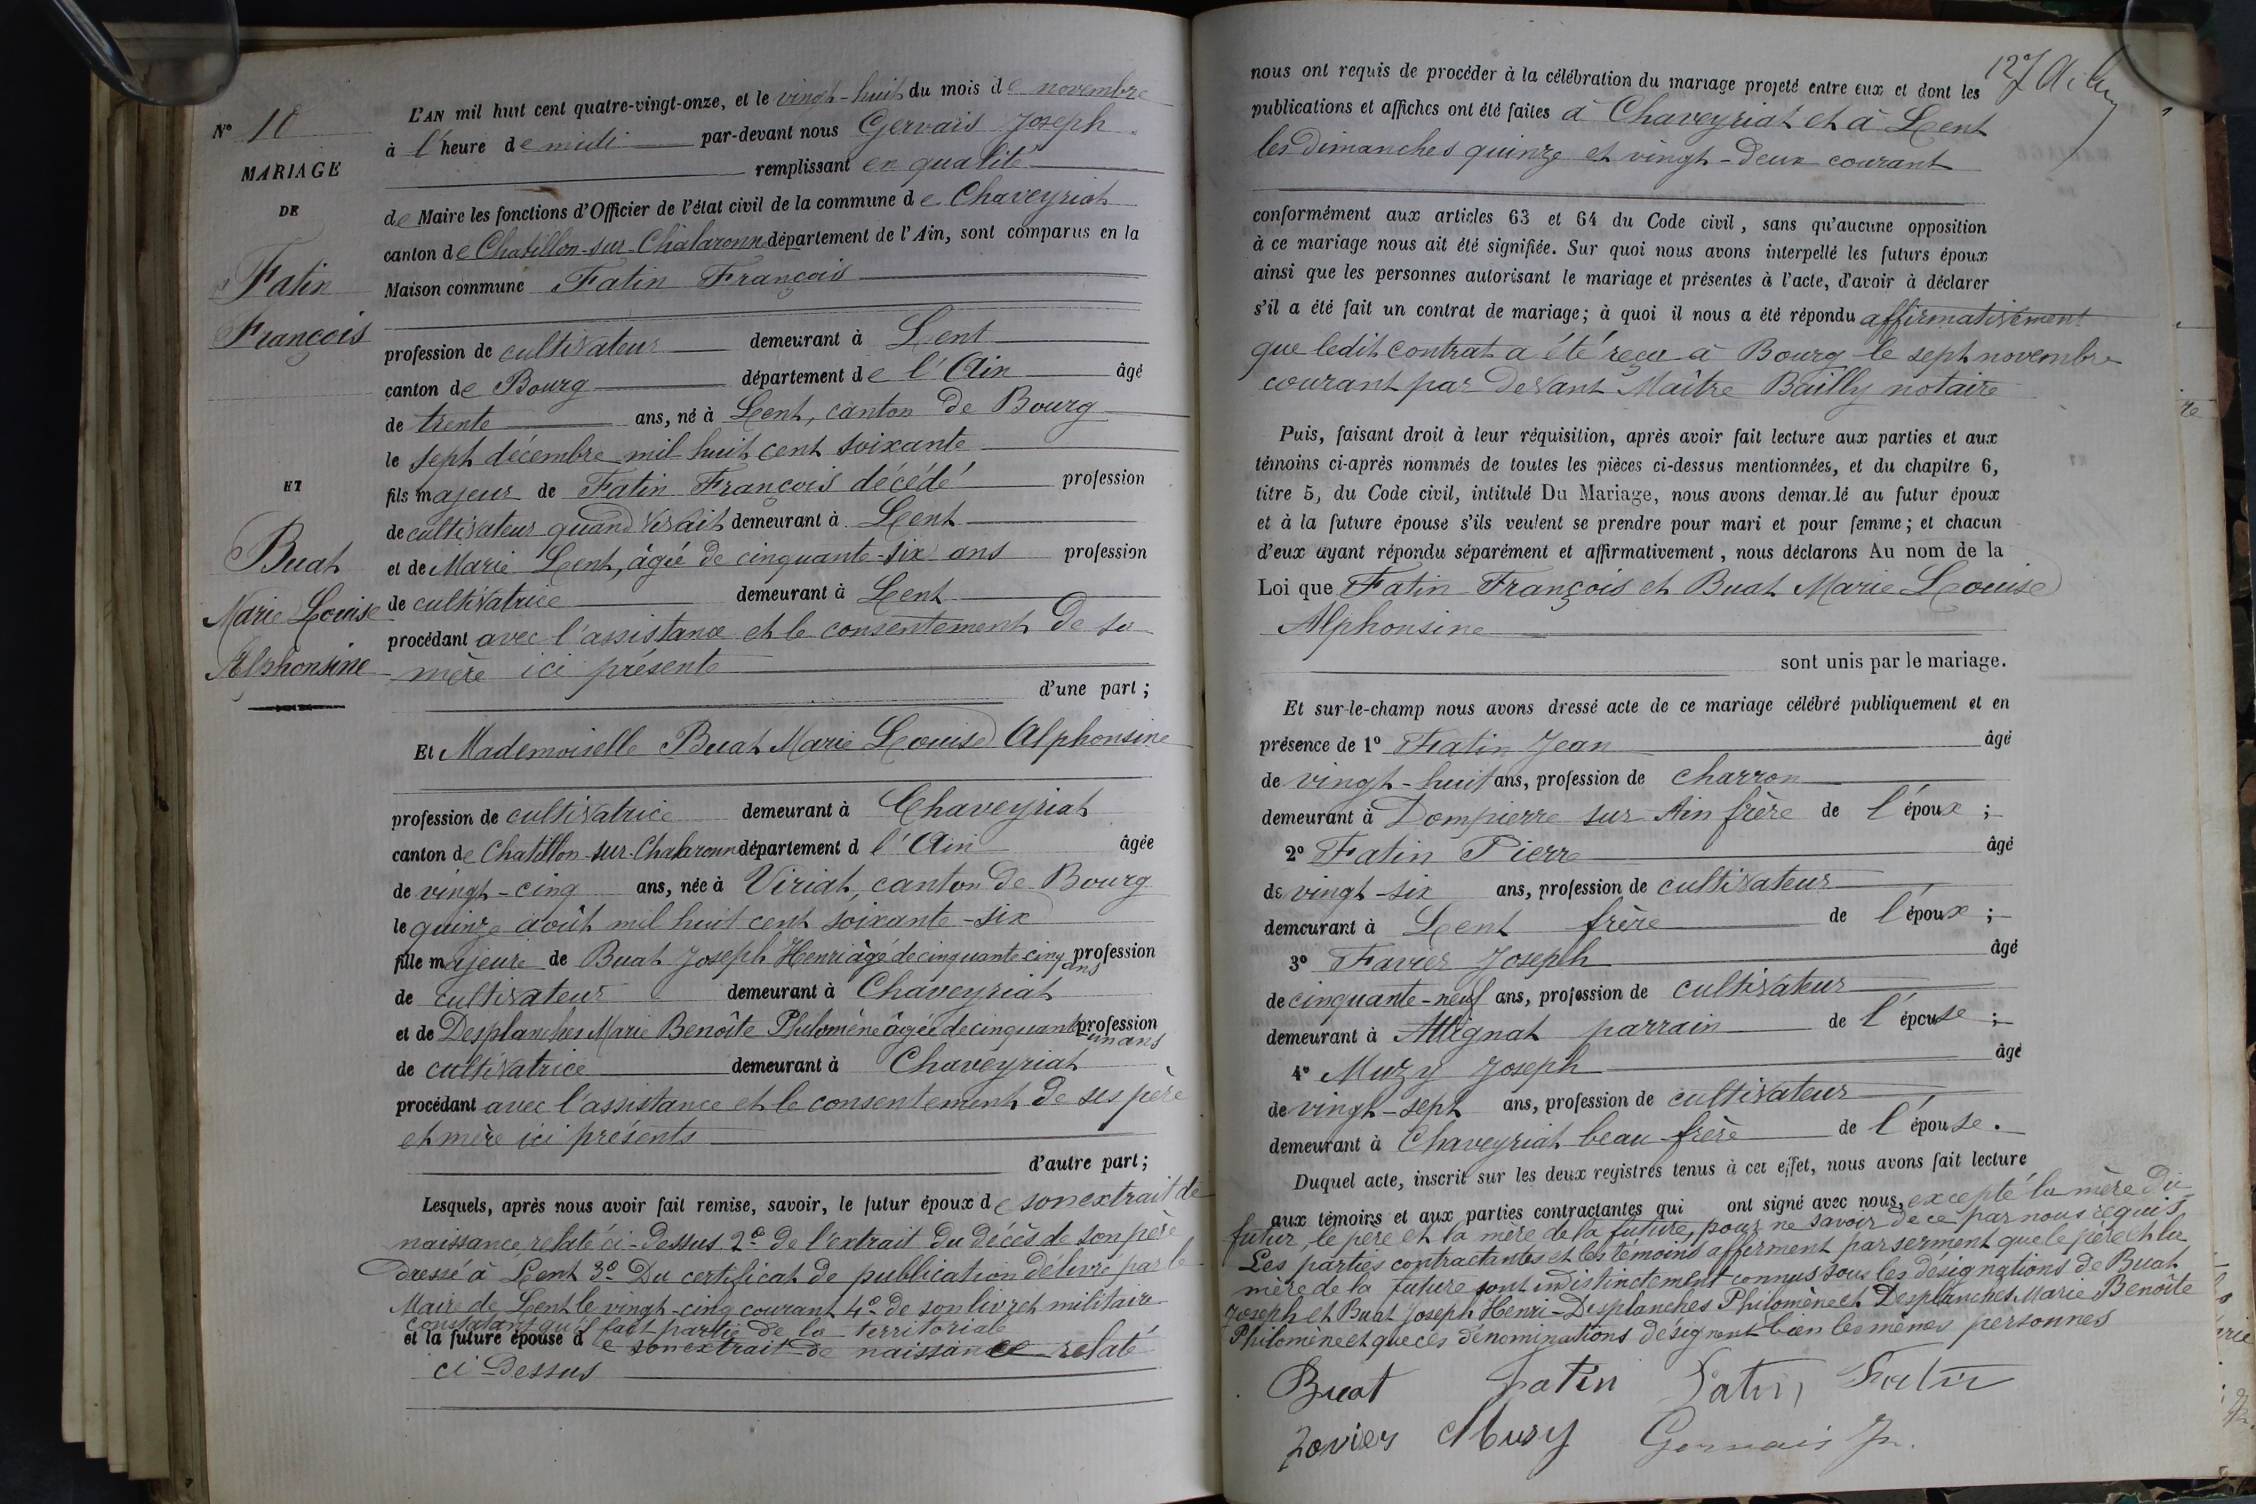 N° 10
MARIAGE
DE
Fatin
François
ET
Buat
Marie Louise
Alphonsine
L'AN mil huit cent quatre-vingt-onze, et le vingt-huit du mois de novembre
à l'heure de midi par-devant nous Gervais Joseph
remplissant en qualité
de Maire les fonctions d'Officier de l'état civil de la commune de Chaveyriat
canton de Chatillon-sur-Chalaronne département de l'Ain, sont comparus en la
Maison commune Fatin François
profession de cultivateur demeurant à Lent
canton de Bourg département de l'Ain âgé
de trente ans, né à Lent, canton de Bourg
le sept décembre mil huit cent soixante
fils majeur de Fatin François décédé profession
de cultivateur quand vivait demeurant à Lent
et de Marie Lent, âgée de cinquante-six ans profession
de cultivatrice demeurant à Lent
procédant avec l'assistance et le consentement de sa
mère ici présente
d'une part ;
Et Mademoiselle Buat Marie Louise Alphonsine
profession de cultivatrice demeurant à Chaveyriat
canton de Chatillon-sur-Chalaronne département d l'Ain âgée
de vingt-cinq ans, née à Viriat, canton de Bourg
le quinze août mil huit cent soixante-six
fille majeure de Buat Joseph Henri âgé de cinquante cinq ans profession
de cultivateur demeurant à Chaveyriat
et de Desplanches Marie Benoîte Philomène âgée de cinquante un ans profession
de cultivatrice demeurant à Chaveyriat
procédant avec l'assistance et le consentement de ses père
et mère ici présents
d'autre part ;
Lesquels, après nous avoir fait remise, savoir, le futur époux de son extrait de
naissance relaté ci-dessus 2° de l'extrait du décès de son père
dressé à Lent 3° Du certificat de publication délivré par le
Maire de Lent le vingt-cinq courant 4° de son livret militaire
constatant qu'il fait partie de la territoriale
et la future épouse de son extrait de naissance relaté
ci-dessus
127
nous ont requis de procéder à la célébration du mariage projeté entre eux et dont les
publications et affiches ont été faites à Chaveyriat et à Lent
les dimanches quinze et vingt-deux courant
conformément aux articles 63 et 64 du Code civil, sans qu'aucune opposition
à ce mariage nous ait été signifiée. Sur quoi nous avons interpellé les futurs époux
ainsi que les personnes autorisant le mariage et présentes à l'acte, d'avoir à déclarer
s'il a été fait un contrat de mariage ; à quoi il nous a été répondu affirmativement
que ledit contrat a été reçu à Bourg le sept novembre
courant par devant Maître Bailly notaire
Puis, faisant droit à leur réquisition, après avoir fait lecture aux parties et aux
témoins ci-après nommés de toutes les pièces ci-dessus mentionnées, et du chapitre 6,
titre 5, du Code civil, intitulé Du Mariage, nous avons demandé au futur époux
et à la future épouse s'ils veulent se prendre pour mari et pour femme ; et chacun
d'eux ayant répondu séparément et affirmativement, nous déclarons Au nom de la
Loi que Fatin François et Buat Marie Louise
Alphonsine
sont unis par le mariage.
Et sur-le-champ nous avons dressé acte de ce mariage célébré publiquement et en
présence de 1° Fatin Jean âgé
de vingt-huit ans, profession de charron
demeurant à Dompierre sur Ain frère de l'époux ;
2° Fatin Pierre âgé
de vingt-six ans, profession de cultivateur
demeurant à Lent frère de l'époux ;
3° Favier Joseph âgé
de cinquante-neuf ans, profession de cultivateur
demeurant à Attignat parrain de l'épouse ;
4° Muzy Joseph âgé
de vingt-sept ans, profession de cultivateur
demeurant à Chaveyriat beau-frère de l'épouse.
Duquel acte, inscrit sur les deux registres tenus à cet effet, nous avons fait lecture
aux témoins et aux parties contractantes qui ont signé avec nous, excepté la mère du
futur, le père et la mère de la future, pour ne savoir de ce par nous requis
Les parties contractantes et les témoins affirment par serment que le père et la
mère de la future sont indistinctement connus sous les désignations de Buat
Joseph et Buat Joseph Henri-Desplanches Philomène et Desplanches Marie Benoîte
Philomène et que ces dénominations désignent bien les mêmes personnes
Buat Fatin Fatin Fatin
Favier Musy Gervais J.